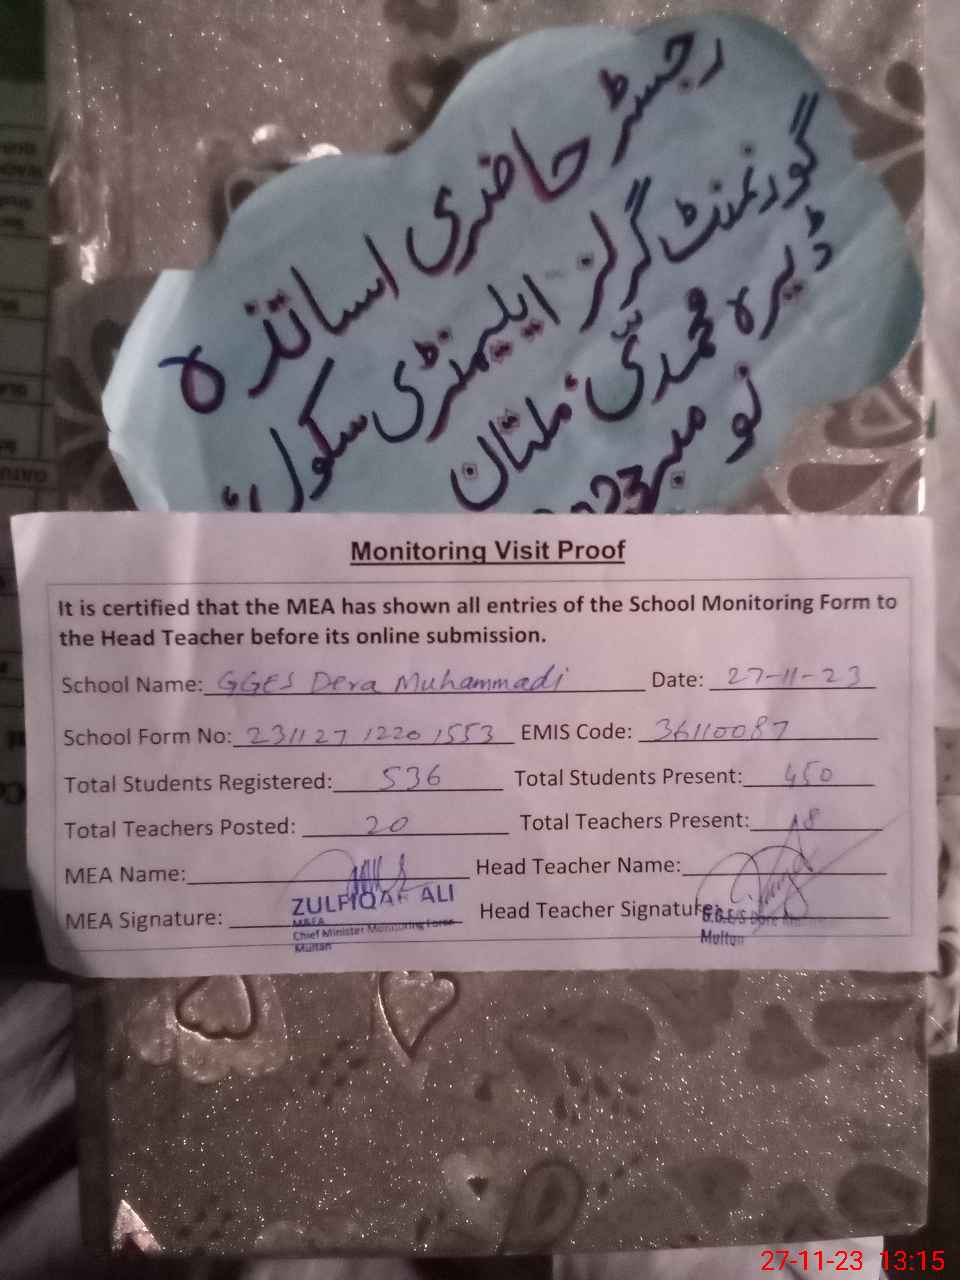 رجسٹر حاضری اساتذہ
گورنمنٹ گرلز ایلیمنٹری سکول،
ڈیرہ محمدی ملتان
نومبر 2023
Monitoring Visit Proof
It is certified that the MEA has shown all entries of the School Monitoring Form to
the Head Teacher before its online submission.
School Name: GGES Dera Muhammadi Date: 27-11-23
School Form No: 231127 1220 1553 EMIS Code: 36110087
Total Students Registered: 536 Total Students Present: 450
Total Teachers Posted: 20 Total Teachers Present: 18
MEA Name: Head Teacher Name:
ZULFIQAR ALI
MEA Signature: Head Teacher Signature:
MEA
Chief Minister Monitoring Force
Multan
G.G.E/S Dera
Multan
27-11-23 13:15